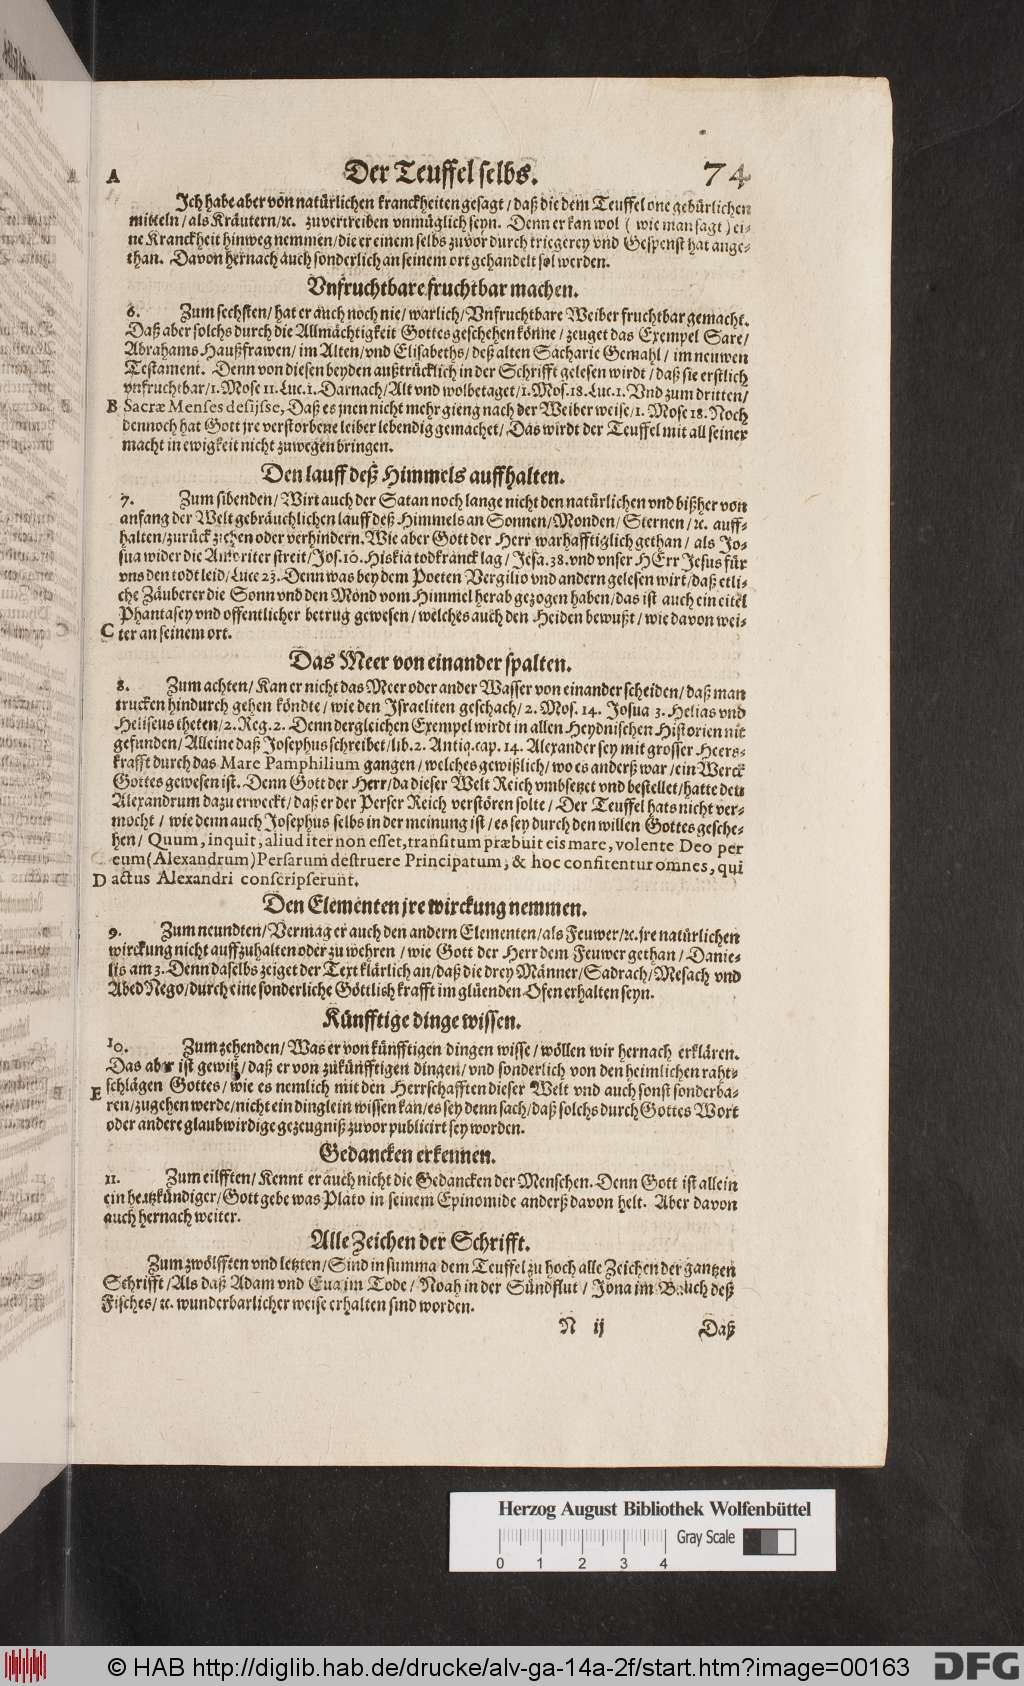 A Der Teuffel selbs. 74
Ich habe aber von natürlichen kranckheiten gesagt / daß die dem Teuffel one gebürlichen
mitteln / als Kräutern / ꝛc. zuvertreiben vnmüglich seyn. Denn er kan wol ( wie man sagt ) ei-
ne Kranckheit hinweg nemmen / die er einem selbs zuvor durch triegerey vnd Gespenst hat ange-
than. Davon hernach auch sonderlich an seinem ort gehandelt sol werden.
Vnfruchtbare fruchtbar machen.
6. Zum sechsten / hat er auch noch nie / warlich / Vnfruchtbare Weiber fruchtbar gemacht.
Daß aber solchs durch die Allmächtigkeit Gottes geschehen könne / zeuget das Exempel Sare /
Abrahams Haußfrawen / im Alten / vnd Elisabeths / deß alten Sacharie Gemahl / im neuwen
Testament. Denn von diesen beyden außtrücklich in der Schrifft gelesen wirdt / daß sie erstlich
vnfruchtbar / 1. Mose 11. Luc. 1. Darnach / Alt vnd wolbetaget / 1. Mos. 18. Luc. 1. Vnd zum dritten /
B Sacræ Menses desijsse, Daß es jnen nicht mehr gieng nach der Weiber weise / 1. Mose 18. Noch
dennoch hat Gott jre verstorbene leiber lebendig gemachet / Das wirdt der Teuffel mit all seiner
macht in ewigkeit nicht zuwegen bringen.
Den lauff deß Himmels auffhalten.
7. Zum sibenden / Wirt auch der Satan noch lange nicht den natürlichen vnd bißher von
anfang der Welt gebräuchlichen lauff deß Himmels an Sonnen / Monden / Sternen / ꝛc. auff-
halten / zurück ziehen oder verhindern. Wie aber Gott der Herr warhafftiglich gethan / als Jo-
sua wider die Amoriter streit / Jos. 10. Hiskia todkranck lag / Jesa. 38. vnd vnser HErr Jesus für
vns den todt leid / Luce 23. Denn was bey dem Poeten Vergilio vnd andern gelesen wirt / daß etli-
che Zäuberer die Sonn vnd den Mond vom Himmel herab gezogen haben / das ist auch ein eitel
Phantasey vnd offentlicher betrug gewesen / welches auch den Heiden bewußt / wie davon wei-
C ter an seinem ort.
Das Meer von einander spalten.
8. Zum achten / Kan er nicht das Meer oder ander Wasser von einander scheiden / daß man
trucken hindurch gehen köndte / wie den Israeliten geschach / 2. Mos. 14. Josua 3. Helias vnd
Heliseus theten / 2. Reg. 2. Denn dergleichen Exempel wirdt in allen Heydnischen Historien nit
gefunden / Alleine daß Josephus schreibet / lib. 2. Antiq. cap. 14. Alexander sey mit grosser Heers-
krafft durch das Mare Pamphilium gangen / welches gewißlich / wo es anderß war / ein Werck
Gottes gewesen ist. Denn Gott der Herr / da dieser Welt Reich vmbsetzet vnd bestellet / hatte den
Alexandrum dazu erweckt / daß er der Perser Reich verstören solte / Der Teuffel hats nicht ver-
mocht / wie denn auch Josephus selbs in der meinung ist / es sey durch den willen Gottes gesche-
hen / Quum, inquit, aliud iter non esset, transitum præbuit eis mare, volente Deo per
eum (Alexandrum) Persarum destruere Principatum, & hoc confitentur omnes, qui
D actus Alexandri conscripserunt.
Den Elementen jre wirckung nemmen.
9. Zum neundten / Vermag er auch den andern Elementen / als Feuwer / ꝛc. jre natürlichen
wirckung nicht auffzuhalten oder zu wehren / wie Gott der Herr dem Feuwer gethan / Danie-
lis am 3. Denn daselbs zeiget der Text klärlich an / daß die drey Männer / Sadrach / Mesach vnd
Abed Nego / durch eine sonderliche Göttlich krafft im glüenden Ofen erhalten seyn.
Künfftige dinge wissen.
10. Zum zehenden / Was er von künfftigen dingen wisse / wöllen wir hernach erklären.
Das aber ist gewiß / daß er von zukünfftigen dingen / vnd sonderlich von den heimlichen raht-
E schlägen Gottes / wie es nemlich mit den Herrschafften dieser Welt vnd auch sonst sonderba-
ren / zugehen werde / nicht ein dinglein wissen kan / es sey denn sach / daß solchs durch Gottes Wort
oder andere glaubwirdige gezeugniß zuvor publicirt sey worden.
Gedancken erkennen.
11. Zum eilfften / Kennt er auch nicht die Gedancken der Menschen. Denn Gott ist allein
ein hertzkündiger / Gott gebe was Plato in seinem Epinomide anderß davon helt. Aber davon
auch hernach weiter.
Alle Zeichen der Schrifft.
Zum zwölfften vnd letzten / Sind in summa dem Teuffel zu hoch alle Zeichen der gantzen
Schrifft / Als daß Adam vnd Eua im Tode / Noah in der Sündflut / Jona im Bauch deß
Fisches / ꝛc. wunderbarlicher weise erhalten sind worden.
N ij Daß
Herzog August Bibliothek Wolfenbüttel
Gray Scale
0 1 2 3 4
© HAB http://diglib.hab.de/drucke/alv-ga-14a-2f/start.htm?image=00163 DFG